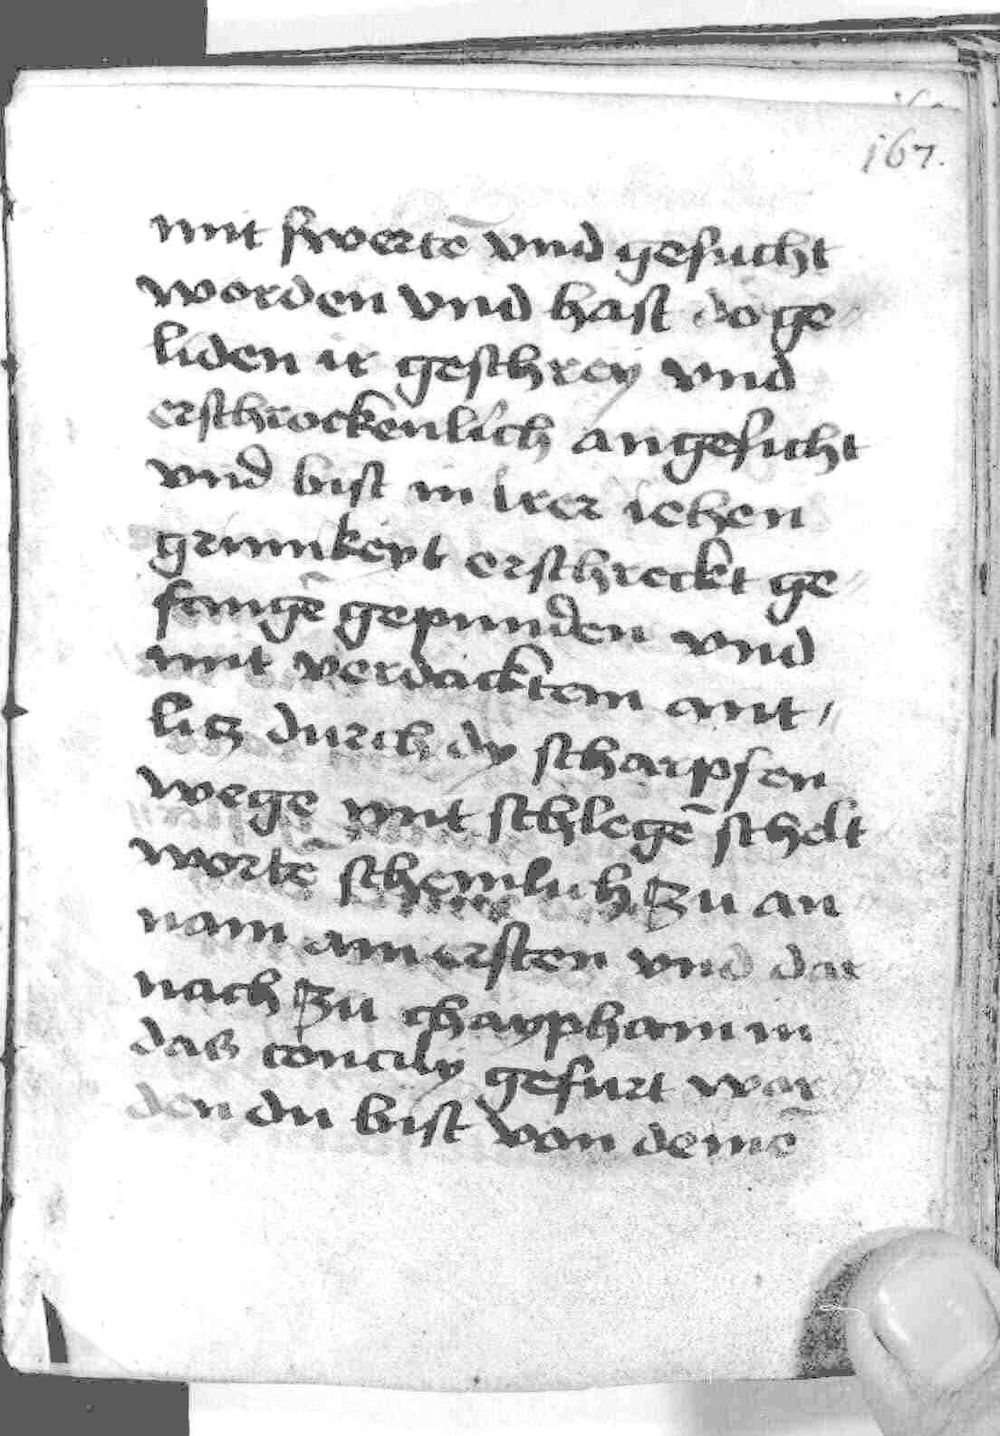 167.
mit swertē vnd gesucht
worden vnd hast do ge
liden ir geschrey vnd
erschrockenlich angesicht
vnd bist in irer iehen
grimikeyt erschreckt ge〃
fangē gepunden vnd
mit verdacktem ant〃
litz durch dy scharpfen
wege mit schlegē schelt
wortē schemlich zu an
nam am ersten vnd dar
nach zu chaypham in
das concily gefurt wor
den du bist von deinē